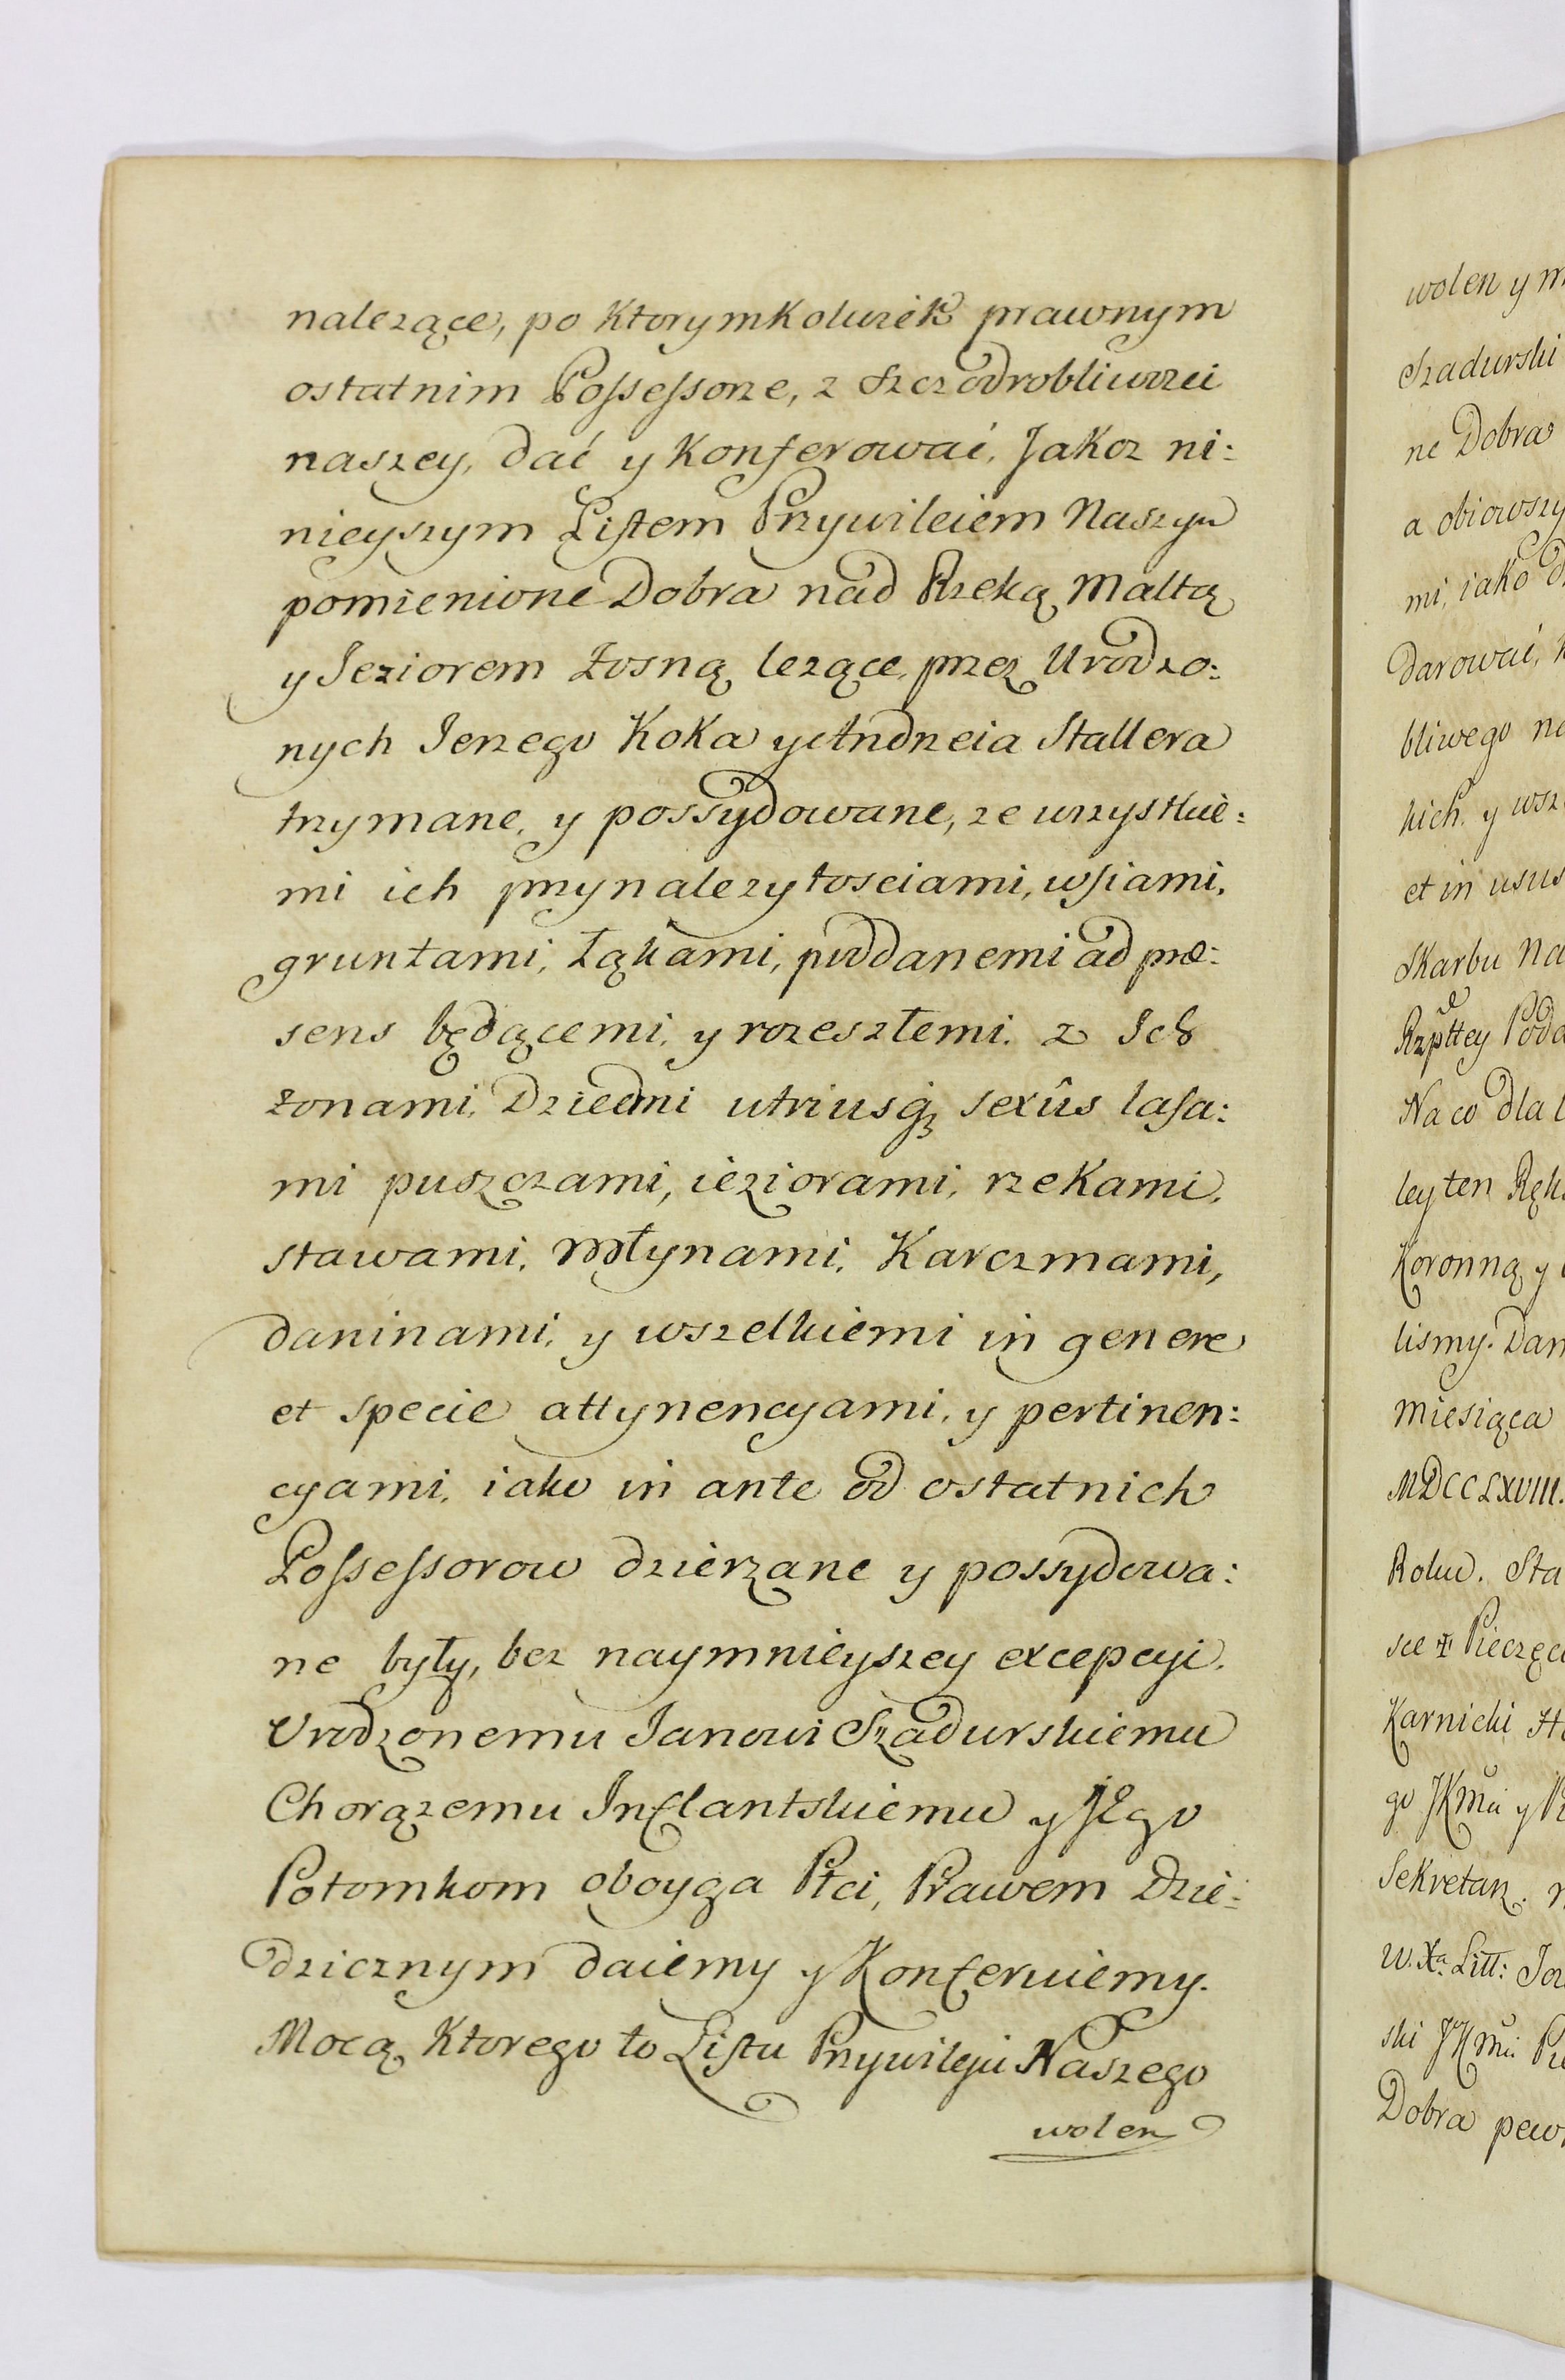 nalezące, po Ktorymkolwiek prawnym
ostatnim Possessorze, z Szczodrobliwosci
naszey, dać y Konferować. Jakoz ni:
nieyszym Listem Przywileiem Naszym
pomienione Dobra nad Rzeką Maltą
y Jeziorem Łosną lezące, przez Urodzo:
nych Jerzego Koka y Andrzeia Stallera
trzymane, y possydowane, ze wszystkie:
mi ich przynalezytosciami, wsiami,
gruntami, Łąkami, poddanemi ad præ:
sens będącemi, y rozeszłemi. z Ich
zonami, Dziećmi utriusq; sexûs lasa:
mi puszczami, ieziorami, rzekami,
stawami, Młynami, Karczmami,
daninami, y wszelkiemi in genere
et specie attynencyami, y pertinen:
cyami, iako in ante od ostatnich
Possessorow dzierzane y possydowa:
ne były, bez naymnieyszey excepcyi.
Urodzonemu Janowi Szadurskiemu
Chorązemu Inflantskiemu y Jego
Potomkom oboyga Płci, Prawem Dzie:
dzicznym daiemy y Konferuiemy.
Mocą Ktorego to Listu Przywileju Naszego
wolen
wolen y
Szadurski
ne Dobra
a obiowszy
mi, iako
darować,
bliwego
kich y
et in usus
Skarbu
Rzpttey
Na co dla
ley ten
Koronną y
lismy. Dan
Miesiąca
MDCCLXVIII.
Rolew. Sta
sce Pieczęci
Karnicki
go JKMci y
Sekretarz.
W. Xa. Litt:
ski JKMci
Dobra